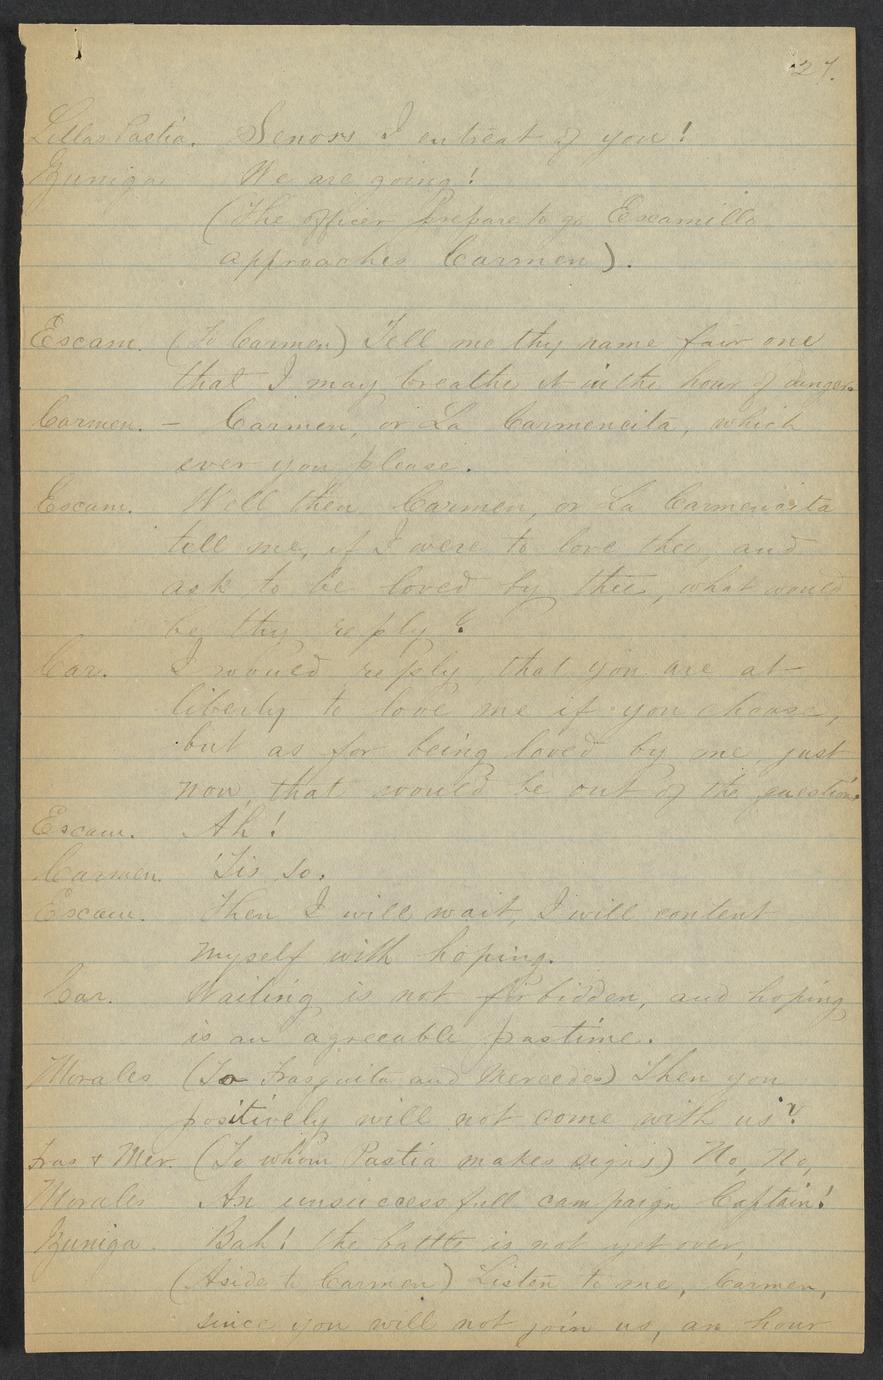 27.
Lillas Pastia. Senors I entreat of you!
Zuniga We are going!
(The officer prepare to go Escamillo
approaches Carmen).
Escam. (To Carmen) Tell me thy name fair one
that I may breathe it in the hour of danger.
Carmen. - Carmen, or La Carmencita, which
ever you please.
Escam. Well then Carmen, or La Carmencita
tell me, if I were to love thee, and
ask to be loved by thee, what would
be thy reply?
Car. I would reply, that you are at
liberty to love me if you choose,
but as for being loved by me, just
now, that would be out of the question.
Escam. Ah!
Carmen. 'Tis so.
Escam. Then I will wait, I will content
myself with hoping.
Car. Waiting is not forbidden, and hoping
is an agreeable pastime.
Morales (To Frasquita and Mercedes) Then you
positively will not come with us?
Fras & Mer. (To whom Pastia makes signs) No, No,
Morales An unsuccessfull campaign Captain!
Zuniga. Bah! the battle is not yet over,
(Aside to Carmen) Listen to me, Carmen,
since you will not join us, an hour